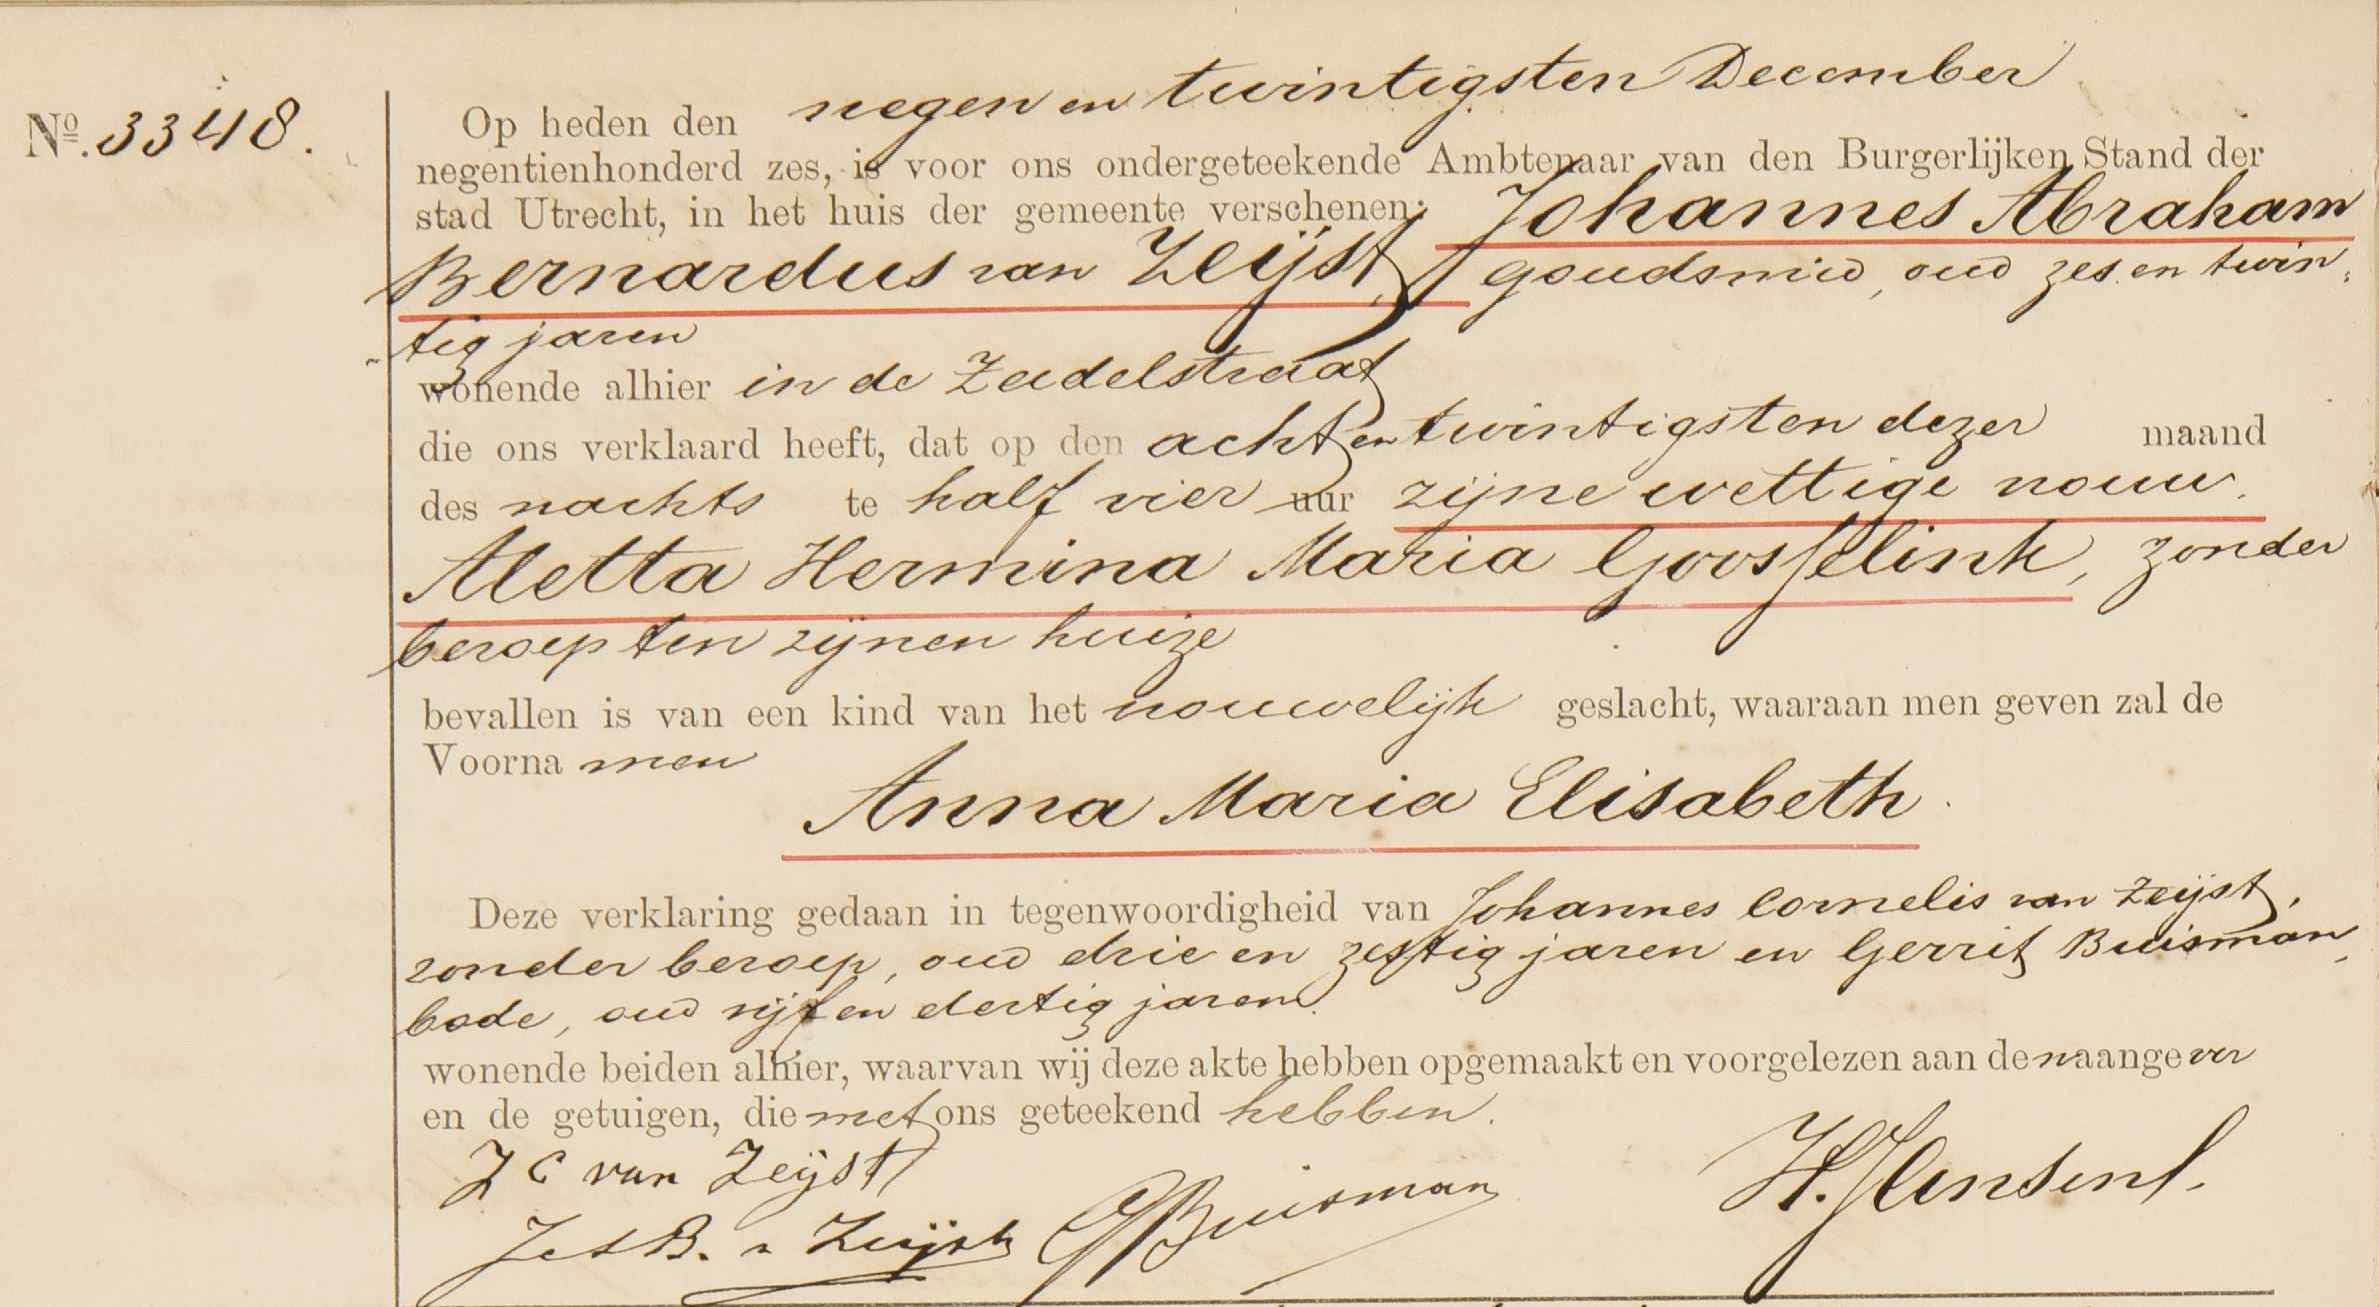 No. 3348.
Op heden den negen en twintigsten December
negentienhonderd zes, is voor ons ondergeteekende Ambtenaar van den Burgerlijken Stand der
stad Utrecht, in het huis der gemeente verschenen: Johannes Abraham
Bernardus van Zeijst, goudsmid, oud zes en twin-
tig jaren
wonende alhier in de Zadelstraat
die ons verklaard heeft, dat op den acht en twintigsten dezer maand
des nachts te half vier uur zijne wettige vrouw
Aletta Hermina Maria Goosselink, zonder
beroep ten zijnen huize
bevallen is van een kind van het vrouwelijk geslacht, waaraan men geven zal de
Voornamen
Anna Maria Elisabeth.
Deze verklaring gedaan in tegenwoordigheid van Johannes Cornelis van Zeijst,
zonder beroep, oud drie en zestig jaren en Gerrit Buisman,
bode, oud vijf en dertig jaren
wonende beiden alhier, waarvan wij deze akte hebben opgemaakt en voorgelezen aan den aangever
en de getuigen, die met ons geteekend hebben.
J C van Zeijst
B. v Zeijst GBuisman